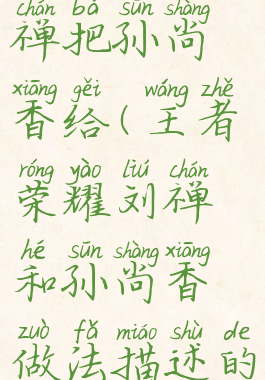 chán bǎ sūn shàng
禅把孙尚
xiāng gěi wáng zhě
香给(王者
róng yào liú chán
荣耀刘禅
hé sūn shàng xiāng
和孙尚香
zuò fǎ miáo shù de
做法描述的